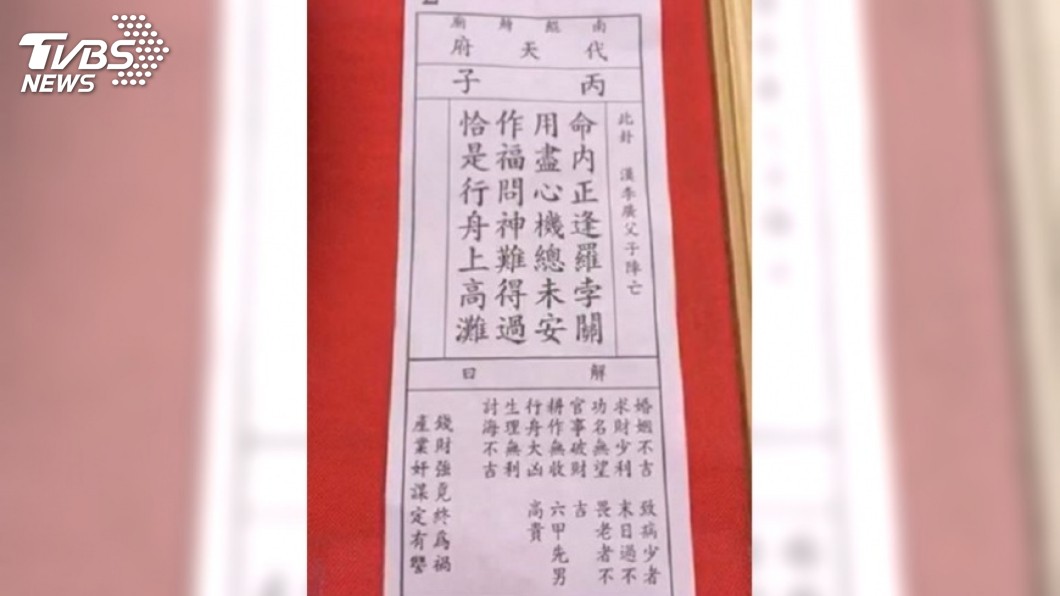 TVBS
NEWS
南鯤鯓廟
代天府
丙子
此卦 漢李廣父子陣亡
命內正逢羅孛關
用盡心機總未安
作福問神難得過
恰是行舟上高灘
解曰
婚姻不吉
求財少利
功名無望
官事破財
耕作無收
行舟大凶
生理無利
討海不吉
致病少者
末日過不
畏老者不
吉
六甲先男
高貴
錢財強竟終為禍
產業奸謀定有